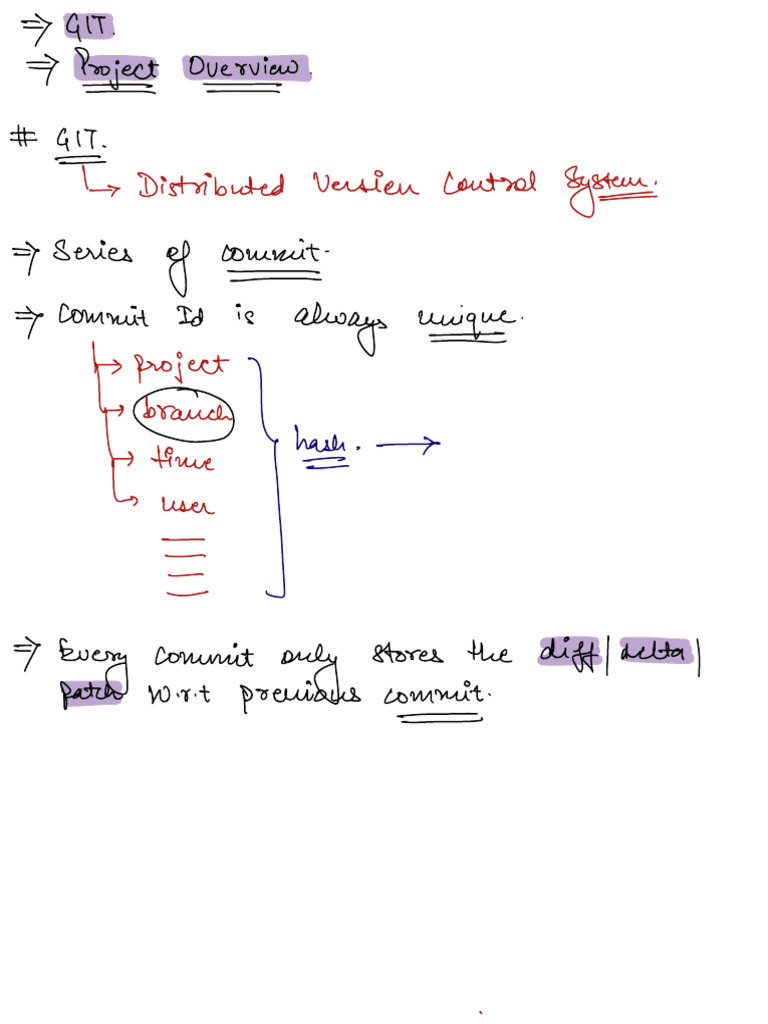 ⇒ GIT.
⇒ Project Overview.
# GIT.
↳ Distributed Version Control System.
⇒ Series of commit.
⇒ Commit Id is always unique.
→ project
→ branch
→ time
→ user
hash. →
⇒ Every commit only stores the diff | delta |
patch w.r.t previous commit.